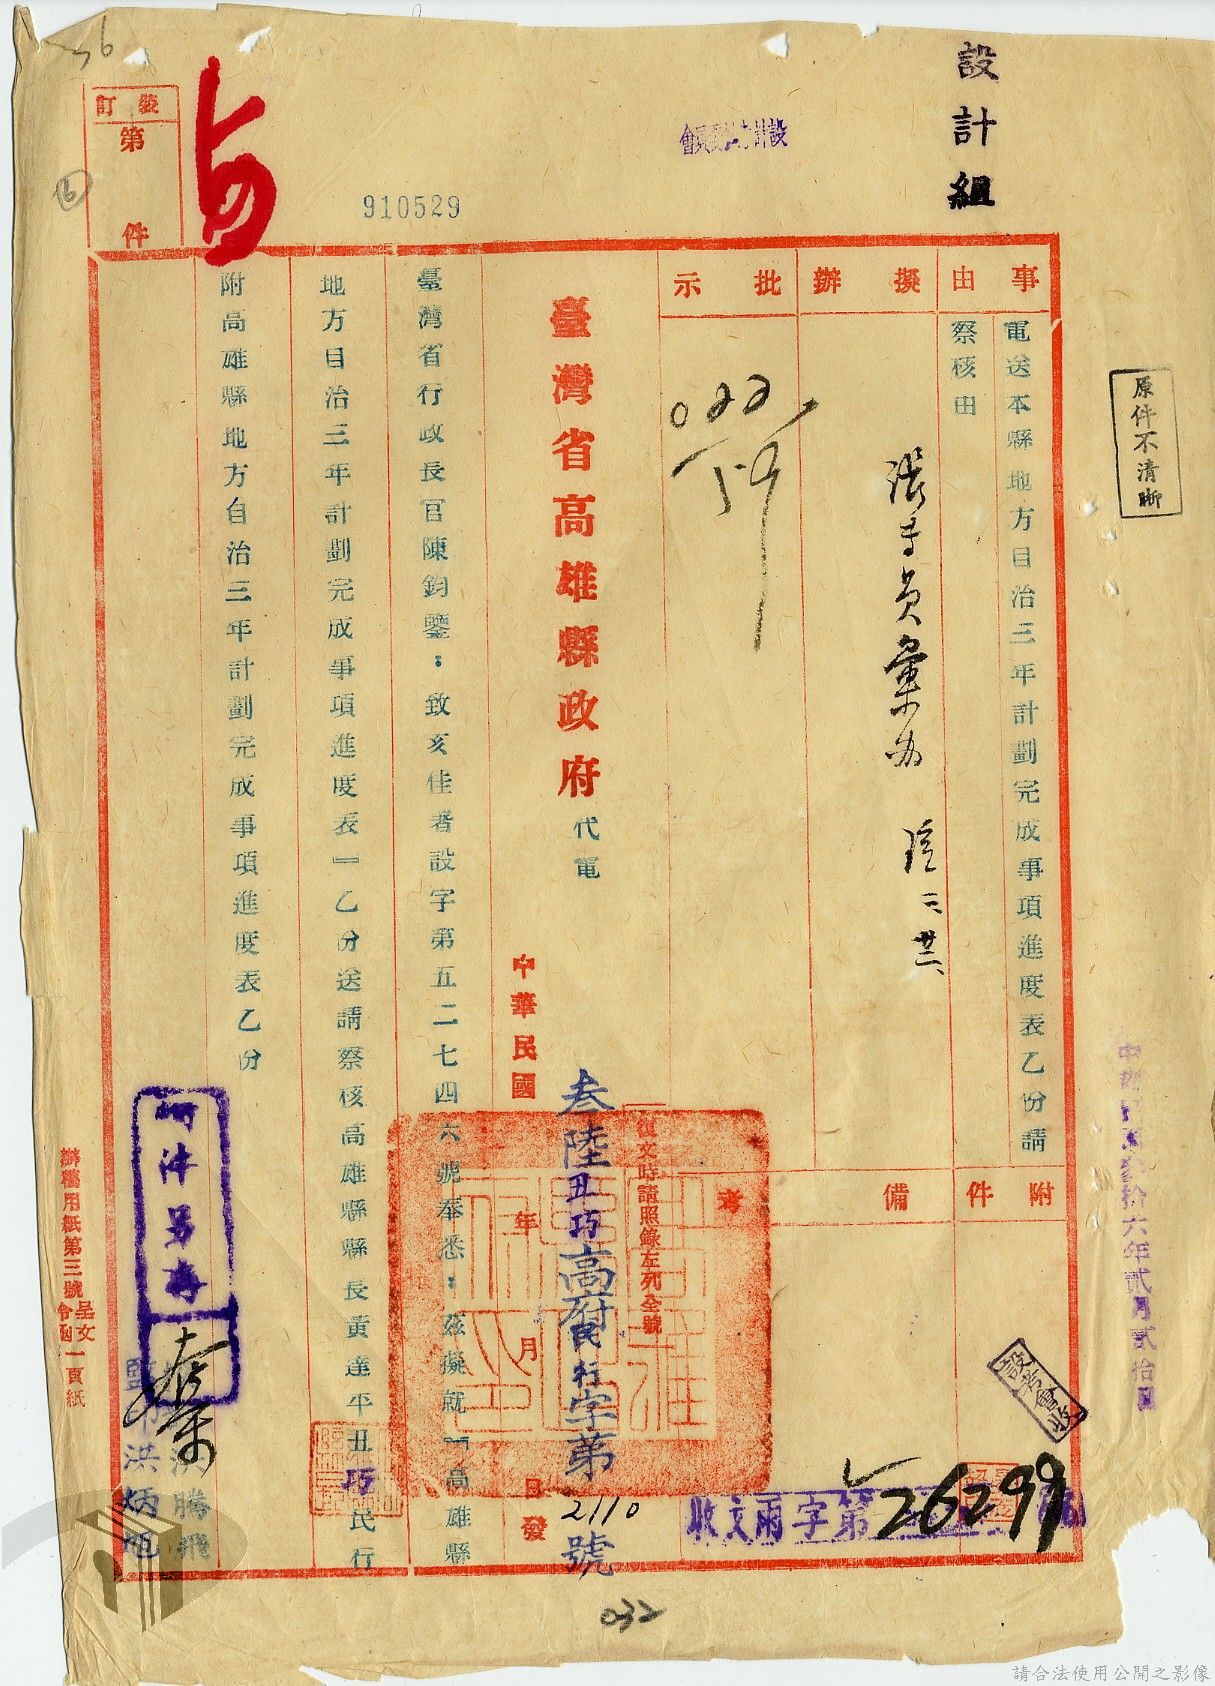 設計組
910529
裝訂
第 件
原件不清晰
事由
電送本縣地方自治三年計劃完成事項進度表乙份請
察核由
擬辦
批示
附件
備考
臺灣省高雄縣政府代電
復文時請照錄左列全號
叁陸丑巧高府民行字第2110號
中華民國 年 月 日發
臺灣省行政長官陳鈞鑒：致亥佳署設字第五二七四六號奉悉：茲擬就『高雄縣
地方自治三年計劃完成事項進度表』乙份送請察核高雄縣縣長黃達平丑巧民行
附高雄縣地方自治三年計劃完成事項進度表乙份
洪騰飛
監印洪炳旭
收文雨字第26299
設考會收
中華民國叁拾六年貳月貳拾 日
辦稿用紙第三號呈文令函一頁紙
032
請合法使用公開之影像